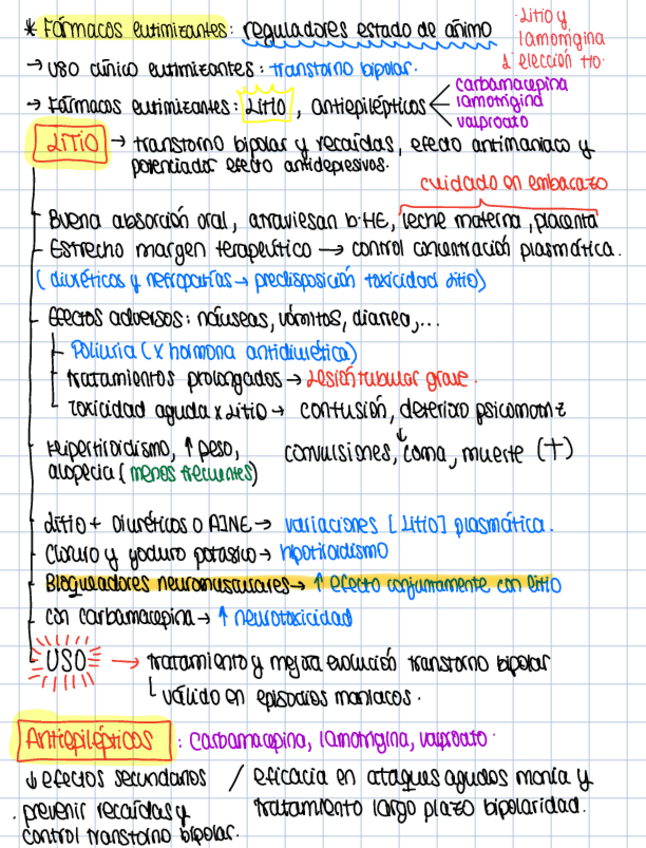 * Fármacos eutimizantes: reguladores estado de ánimo
· Litio y
lamotrigina
d' elección tto.
→ USO clínico eutimizantes: transtorno bipolar.
→ Fármacos eutimizantes: Litio, antiepilépticos < carbamacepina
lamotrigina
valproato
LITIO → transtorno bipolar y recaídas, efecto antimaniaco y
potenciador efecto antidepresivos.
cuidado en embarazo
- Buena absorción oral, atraviesan b.HE, leche materna, placenta
- Estrecho margen terapeútico → control concentración plasmática.
(diuréticos y nefropatías → predisposición toxicidad litio)
- Efectos adversos: náuseas, vómitos, diarrea,...
- Poliuria (x hormona antidiurética)
- tratamientos prolongados → Lesión tubular grave.
- Toxicidad aguda x Litio → confusión, deterioro psicomotriz
↓
convulsiones, coma, muerte (†)
Hipertiroidismo, ↑ peso,
alopecia (menos frecuentes)
- Litio + Diuréticos o AINE → variaciones [Litio] plasmática.
- Cloruro y yoduro potásico → hipotiroidismo
- Bloqueadores neuromusculares → ↑ efecto conjuntamente con litio
- con carbamacepina → ↑ neurotoxicidad
- USO → tratamiento y mejora evolución transtorno bipolar
└ válido en episodios maníacos.
Antiepilépticos : Carbamacepina, lamotrigina, valproato.
↓ efectos secundarios / eficacia en ataques agudos manía y
tratamiento largo plazo bipolaridad.
. prevenir recaídas y
control transtorno bipolar.